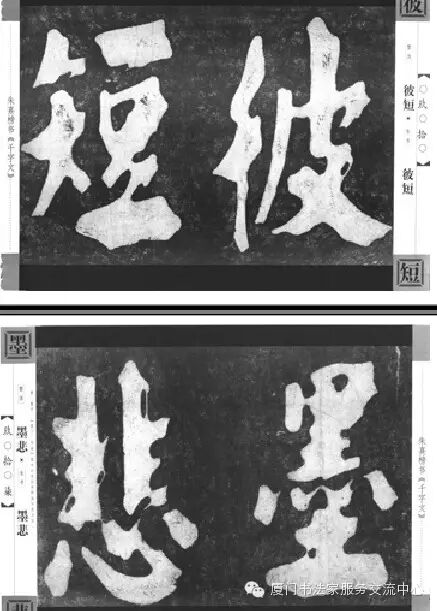 彼
彼短
彼短
短
彼
短
朱熹榜书《千字文》
朱熹榜书《千字文》
墨
悲
墨
墨悲
墨悲
【玖〇拾〇柒】
厦门书法家服务交流中心